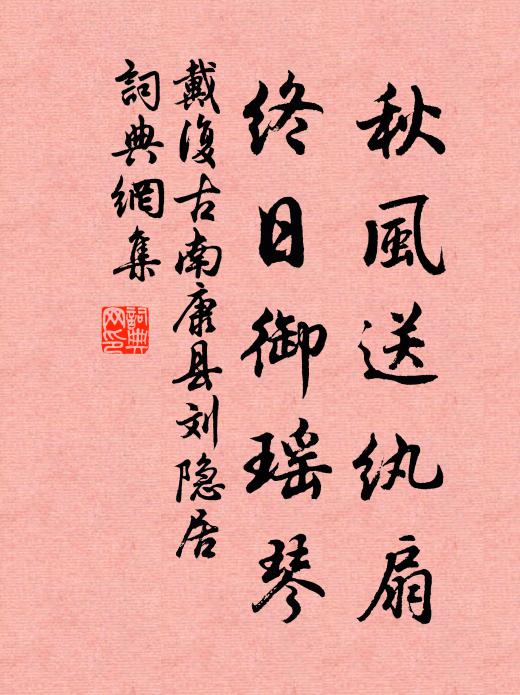 秋風送纨扇
終日御瑶琴
戴復古南康县刘隐居
詞典網集
詞典网印